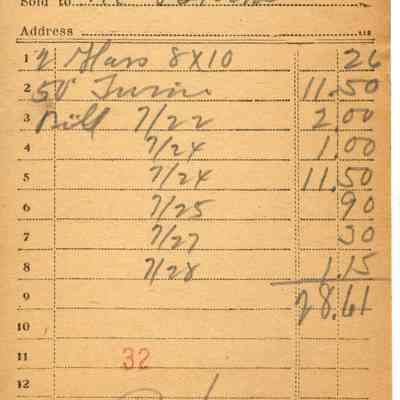 Sold to
Address
1 2 Glass 8X10 26
2 50 11.50
3 Bill 7/22 2.00
4 7/24 1.00
5 7/24 11.50
6 7/25 90
7 7/27 30
8 7/28 1.15
9 28.61
10
11 32
12